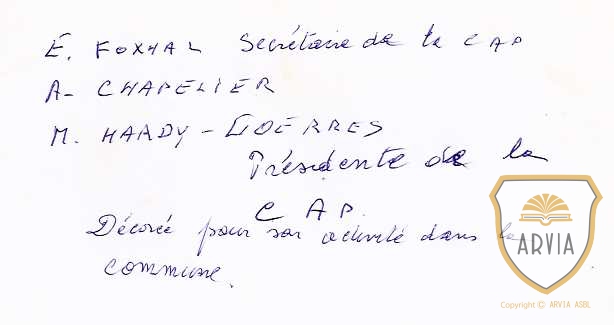 E. FOXHAL Secrétaire de la CAP
A- CHAPELIER
M. HARDY - GOERRES
Présidente de la
CAP.
Décorée pour son activité dans la
commune.
ARVIA
Copyright © ARVIA ASBL